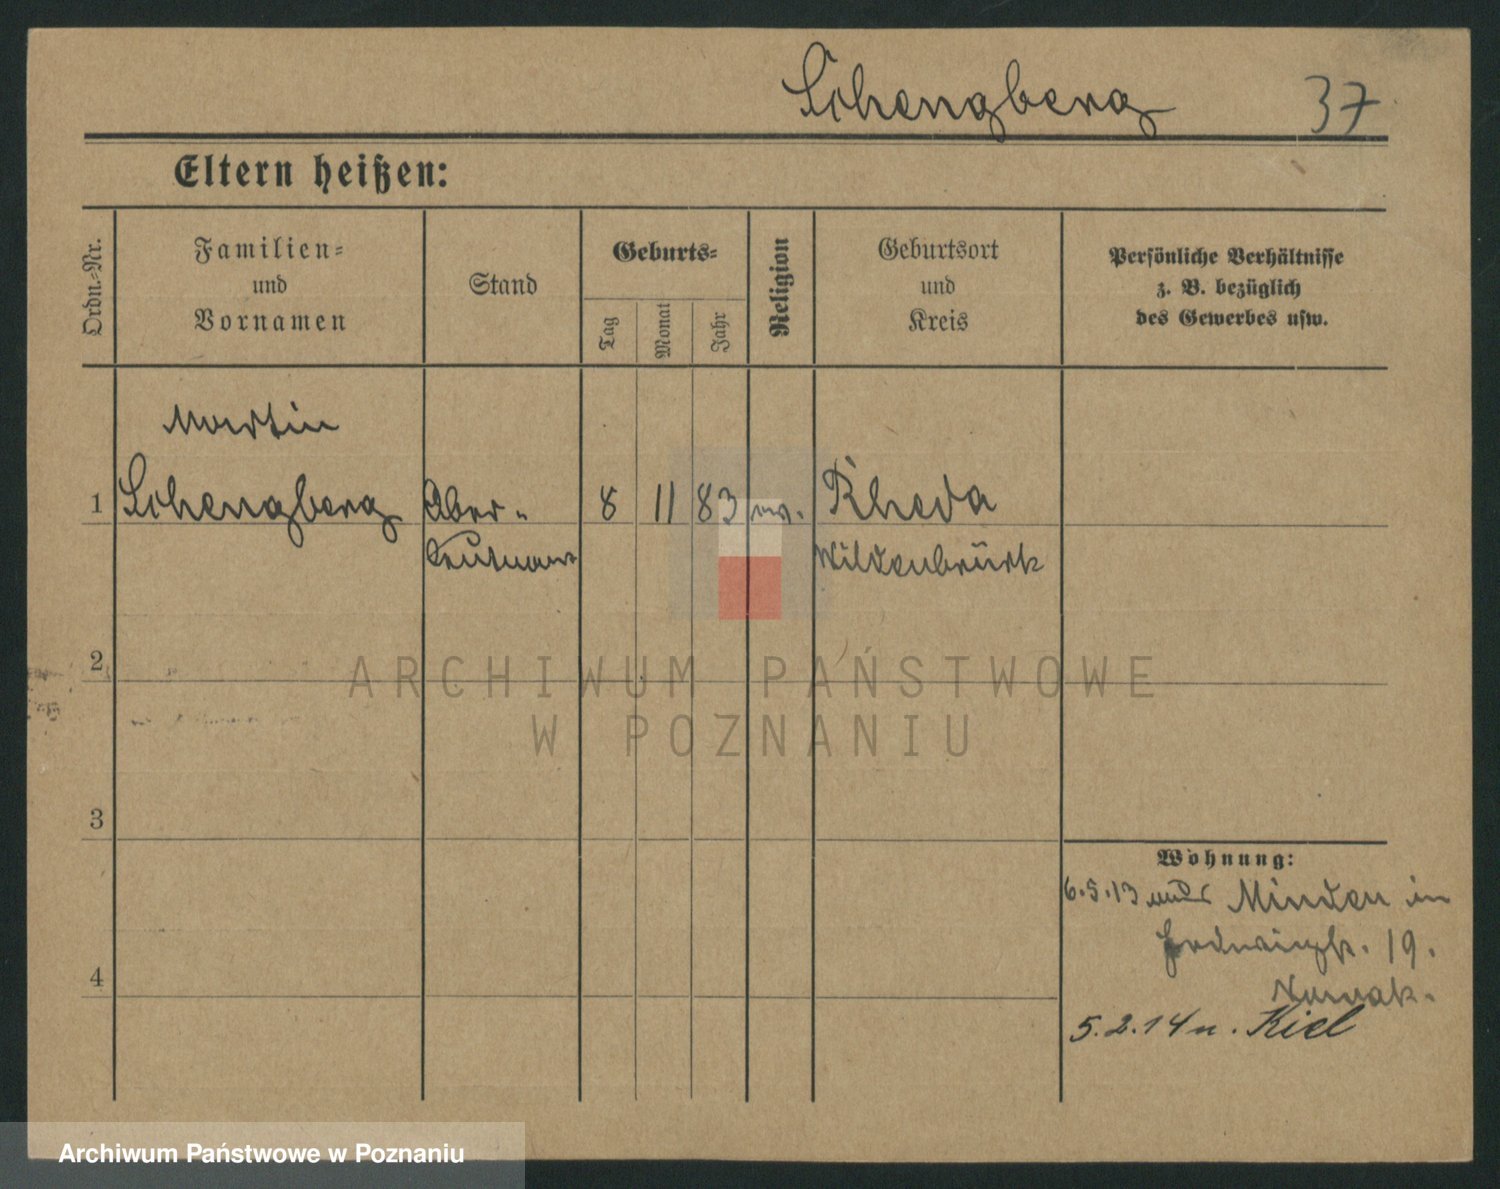 Schengberg 37
Eltern heißen:
Ordn.-Nr.
Familien-
und
Vornamen
Stand
Geburts-
Tag
Monat
Jahr
Religion
Geburtsort
und
Kreis
Persönliche Verhältnisse
z. B. bezüglich
des Gewerbes usw.
Martin
1 Schengberg Ober- 8 11 83 Rheda
Wildenbrück
2
ARCHIWUM PAŃSTWOWE
W POZNANIU
3
Wohnung:
6.5.13 Minden in
19.
Nowak.
4
5.2.14 n. Kiel
Archiwum Państwowe w Poznaniu